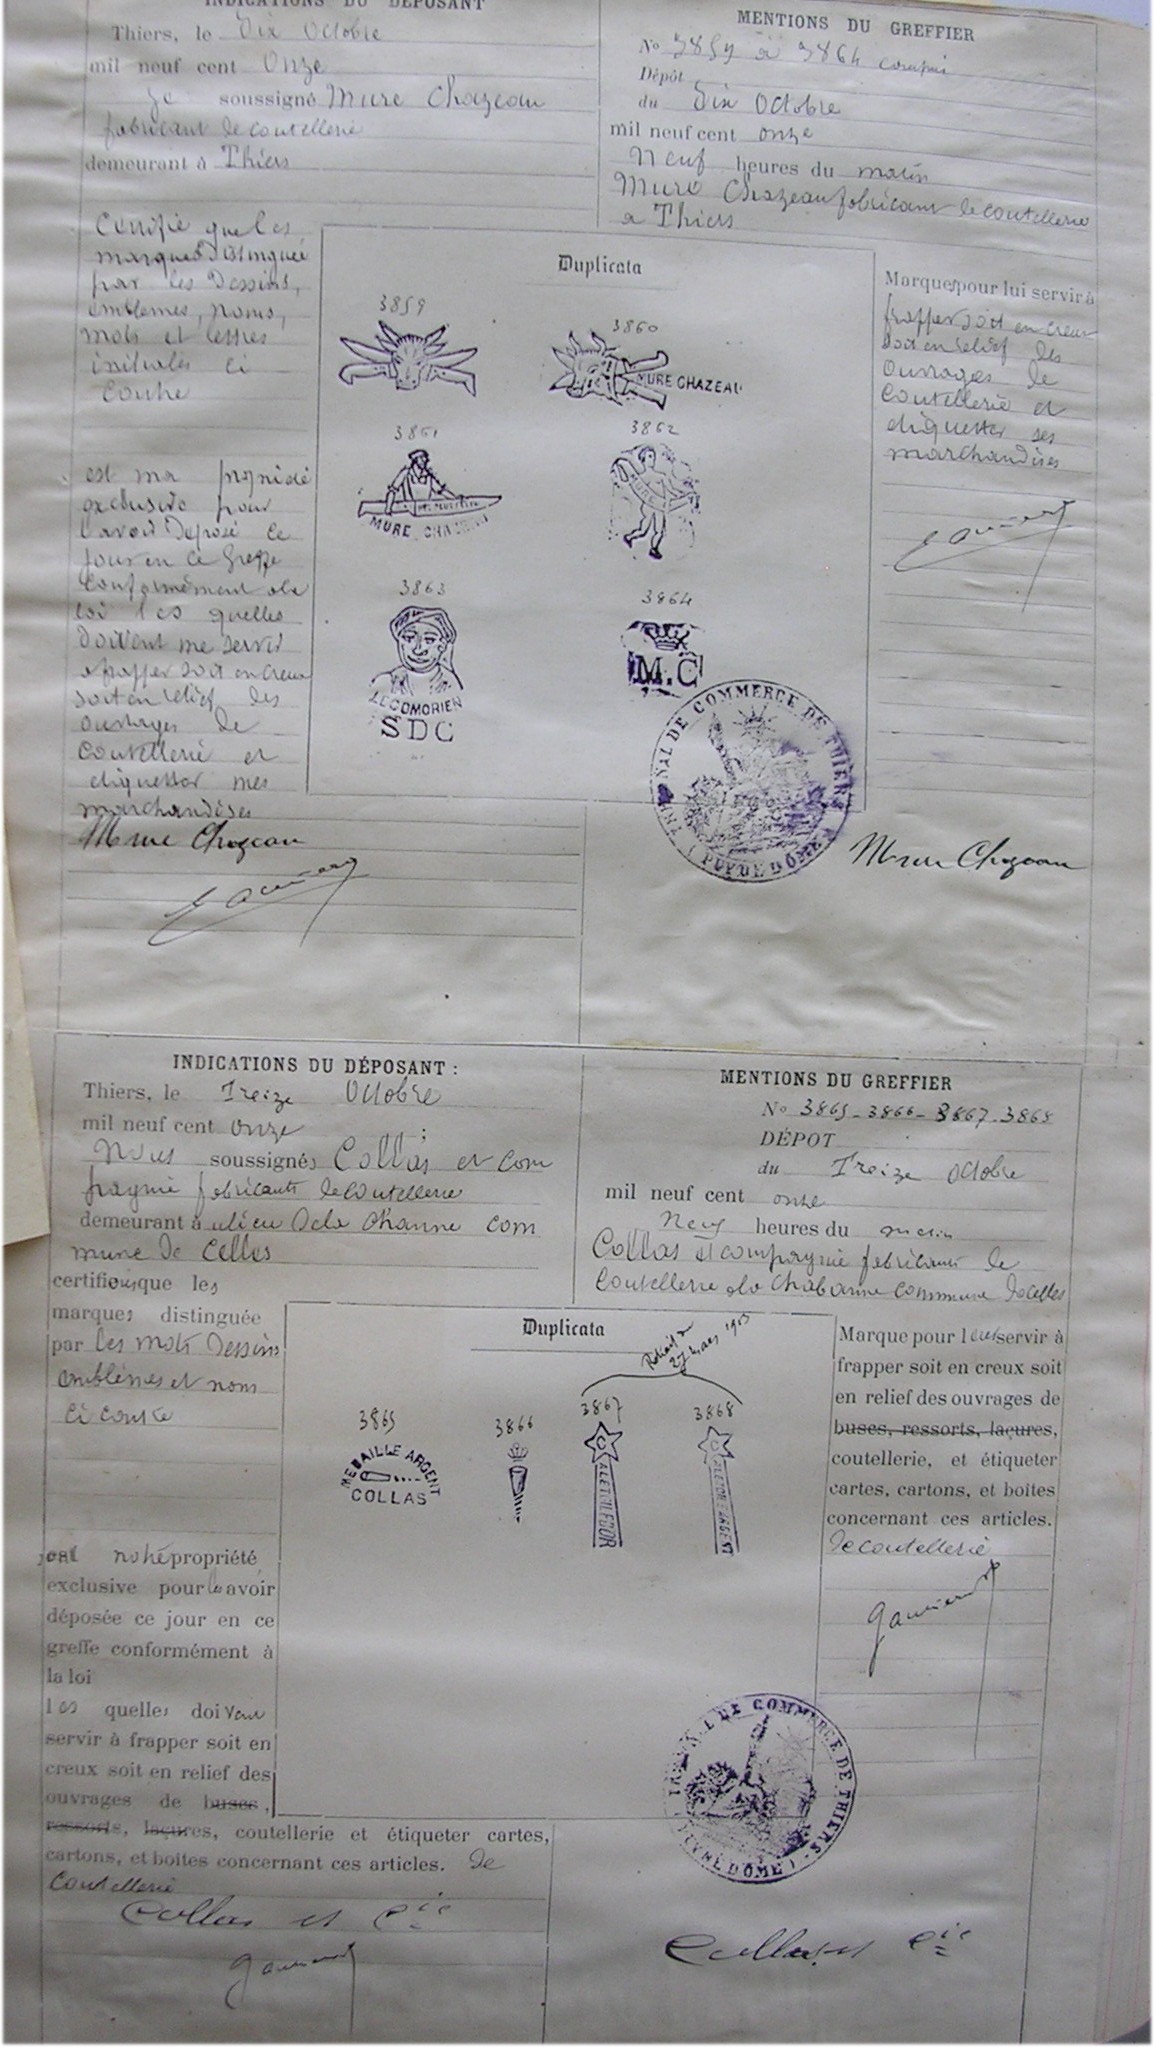 INDICATIONS DU DÉPOSANT
Thiers, le Dix Octobre
mil neuf cent Onze
Je soussigné Mure Chazeau
fabricant de coutellerie
demeurant à Thiers
Certifie que les
marques distinguée
par les Dessins,
emblemes, noms,
mots et lettres
initiales ci
contre
est ma propriété
exclusive pour
l'avoir Déposé ce
jour en ce Greffe
Conformément a la
loi les quelles
doivent me servir
a frapper soit en creux
soit en relief des
ouvrages de
Coutellerie et
etiquetter mes
marchandises
Mure Chazeau
MENTIONS DU GREFFIER
No 3859 a 3864 compris
Dépôt
du Dix Octobre
mil neuf cent onze
Neuf heures du matin
Mure Chazeau fabricant de coutellerie
a Thiers
Duplicata
3859
3860
MURE CHAZEAU
3861
MURE CHAZEAU
3862
MURE
3863
LE COMORIEN
SDC
3864
M.C
TRIBUNAL DE COMMERCE DE THIERS
(PUY DE DÔME)
Marques pour lui servir à
frapper soit en creux
soit en relief des
ouvrages de
Coutellerie et
etiquetter ses
marchandises
Mure Chazeau
INDICATIONS DU DÉPOSANT :
Thiers, le Treize Octobre
mil neuf cent onze
Nous soussignés Collas et Com
pagnie fabricants de coutellerie
demeurant à u lieu de la Channe com
mune de Celles
certifions que les
marques distinguée
par les mots Dessins
emblèmes et noms
ci contre
est notre propriété
exclusive pour les avoir
déposée ce jour en ce
greffe conformément à
la loi
les quelles doivent
servir à frapper soit en
creux soit en relief des
ouvrages de buses,
ressorts, laçures, coutellerie et étiqueter cartes,
cartons, et boites concernant ces articles. de
coutellerie
Collas et Cie
MENTIONS DU GREFFIER
No 3865 - 3866 - 3867 - 3868
DÉPOT
du Treize Octobre
mil neuf cent onze
Neuf heures du matin
Collas et compagnie fabricants de
Coutellerie a la Chabanne Commune de Celles
Duplicata
27 Mars 1913
3865
MEDAILLE ARGENT
COLLAS
3866
3867
C
3868
C
Marque pour leur servir à
frapper soit en creux soit
en relief des ouvrages de
buses, ressorts, laçures,
coutellerie, et étiqueter
cartes, cartons, et boites
concernant ces articles.
de coutellerie
TRIBUNAL DE COMMERCE DE THIERS
(PUY DE DÔME)
Collas et Cie